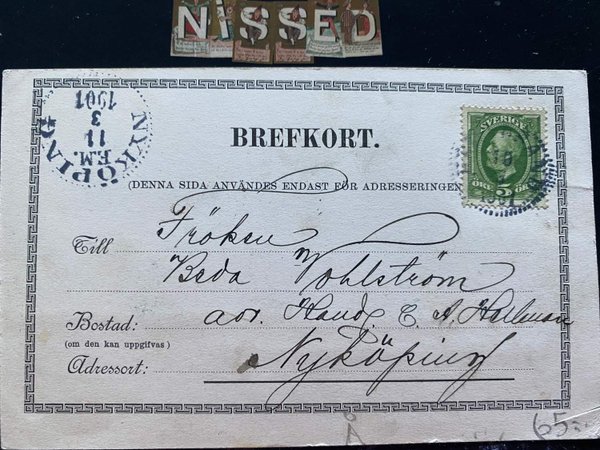 NISSED
BREFKORT.
(DENNA SIDA ANVÄNDES ENDAST FÖR ADRESSERINGEN
SVERIGE
ÖRE 5 ÖRE
NYKÖPING
11
3
1901
E.M.
Till Fröken
Beda Wohlström
Bostad: adr. Hand. C. A. Hallman
(om den kan uppgifvas)
Adressort: Nyköping
Å
65:-